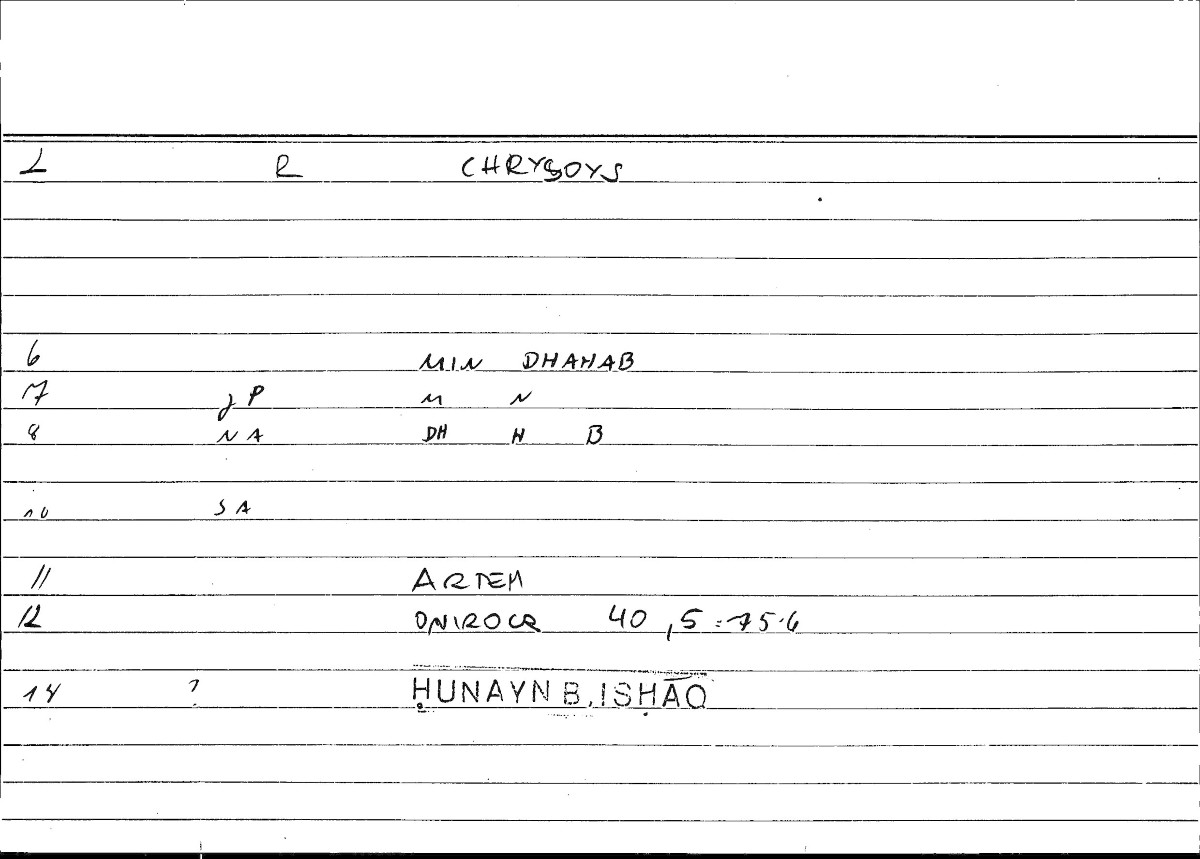 L R CHRYSOYS
6 MIN DHAHAB
7 gP M N
8 NA DH H B
10 SA
11 ARTEM
12 ONIROCR 40,5=75.6
14 ? ḤUNAYN B. ISḤĀQ